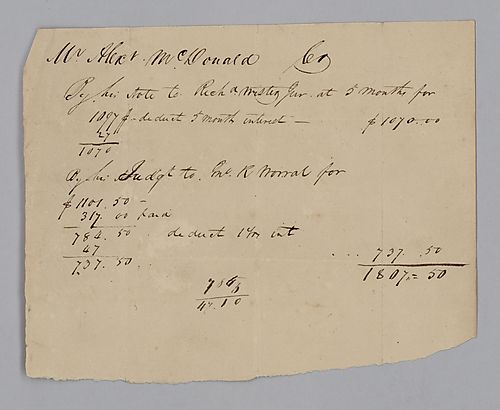 Mr Alexr McDonald Cr
By his Note to Richd Wistey Jur. at 5 months for
1097 $ - deduct 5 month interest — $ 1070.00
27
1070
By his Judgt to Jno. R Worral for
$ 1101.50 -
317.00 paid
784.50 . deduct 1 Yr int
47 ... 737.50
737.50 .. 1807 = 50
784
6
47.10